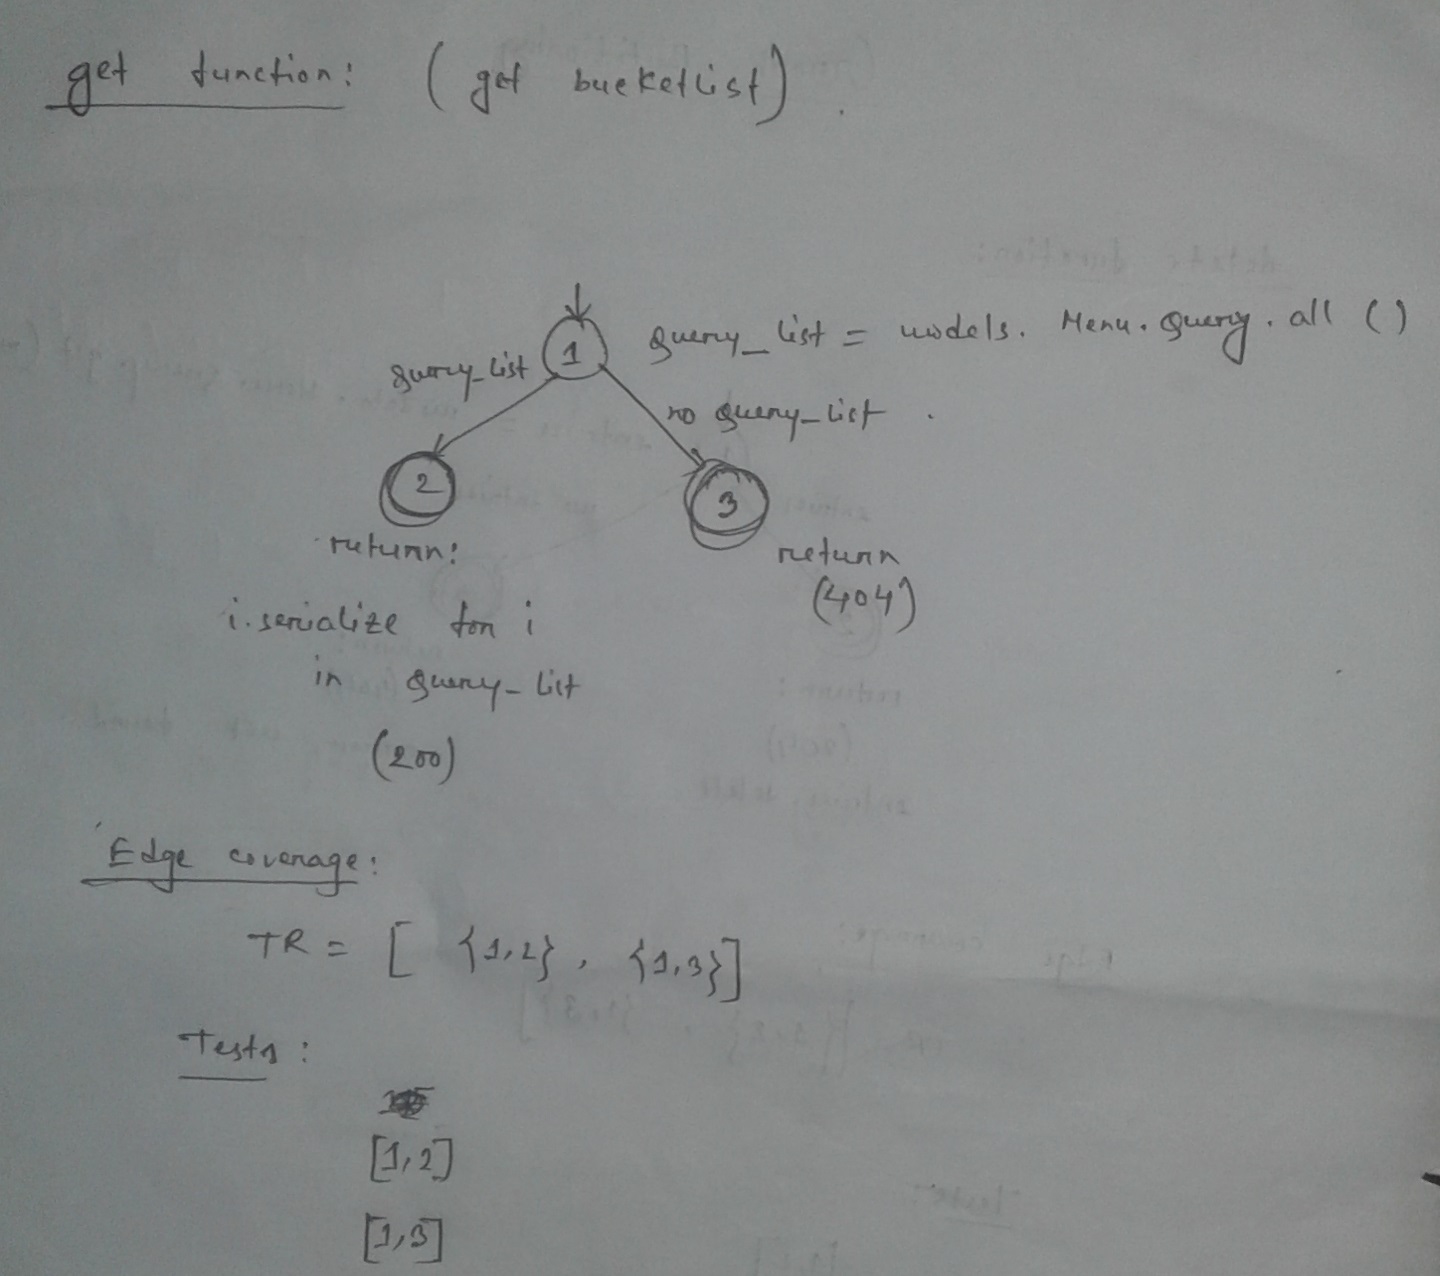 get function: (get bucketlist).
1
query_list = models. Menu. Query. all ()
query_list
no query_list.
2
3
return:
return
(404)
i. serialize for i
in query_list
(200)
Edge coverage:
TR = [ {1,2}, {1,3}]
Tests:
[1,2]
[1,3]